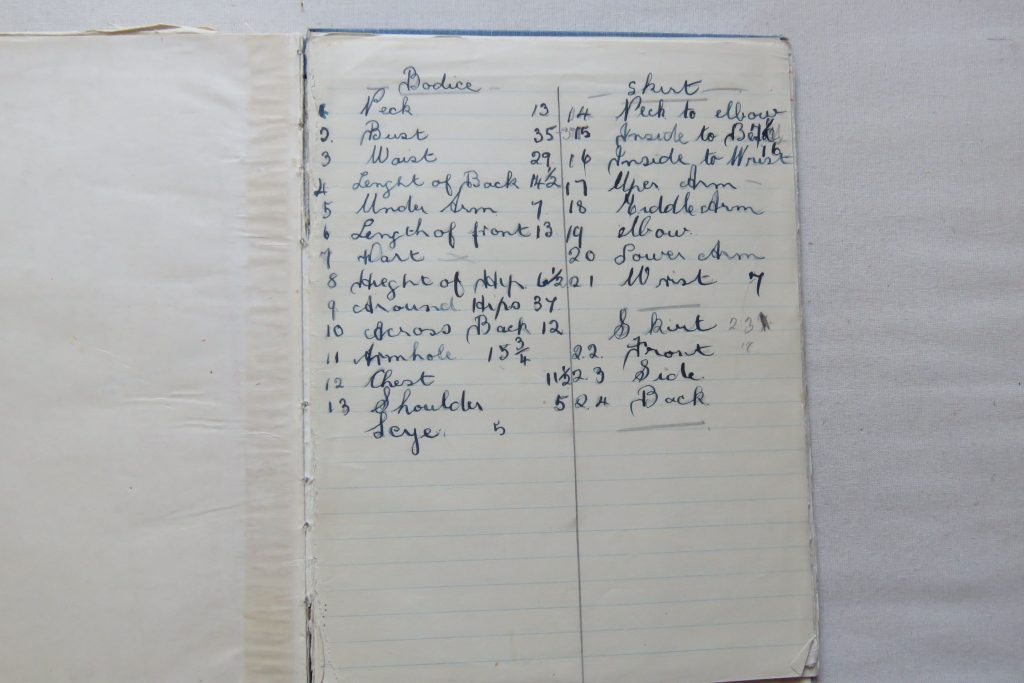 Bodice
1 Neck 13
2. Bust 35
3 Waist 29
4 Lenght of Back 14½
5 Under Arm 7
6 Length of front 13
7 Dart
8 Hieght of Hip 6½
9 Around Hips 37
10 Across Back 12
11 Armhole 15¾
12 Chest 11½
13 Shoulder 5
Scye. 5
skirt
14 Neck to elbow
15 Inside to
16 Inside to Wrist 16
17 Uper Arm
18 Middle Arm
19 elbow
20 Lower Arm
21 Wrist 7
Skirt 23
22. Front 18
23 Side
24 Back